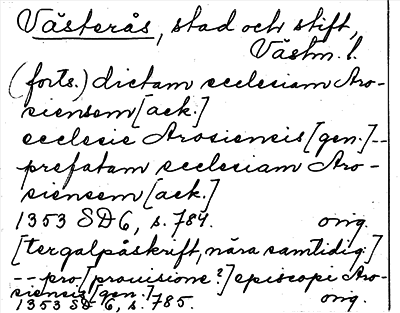 Västerås, stad och stift,
Västm. l.
(forts.) dictam ecclesiam Aro-
siensem [ack.]
ecclesie Arosiensis [gen.] --
prefatam ecclesiam Aro-
siensem [ack.]
1353 SD 6, s. 784. orig.
[tergalpåskrift, nära samtidig:]
-- pro [prouisione?] episcopi Aro-
siensis [gen.]
1353 SD 6, s. 785. orig.